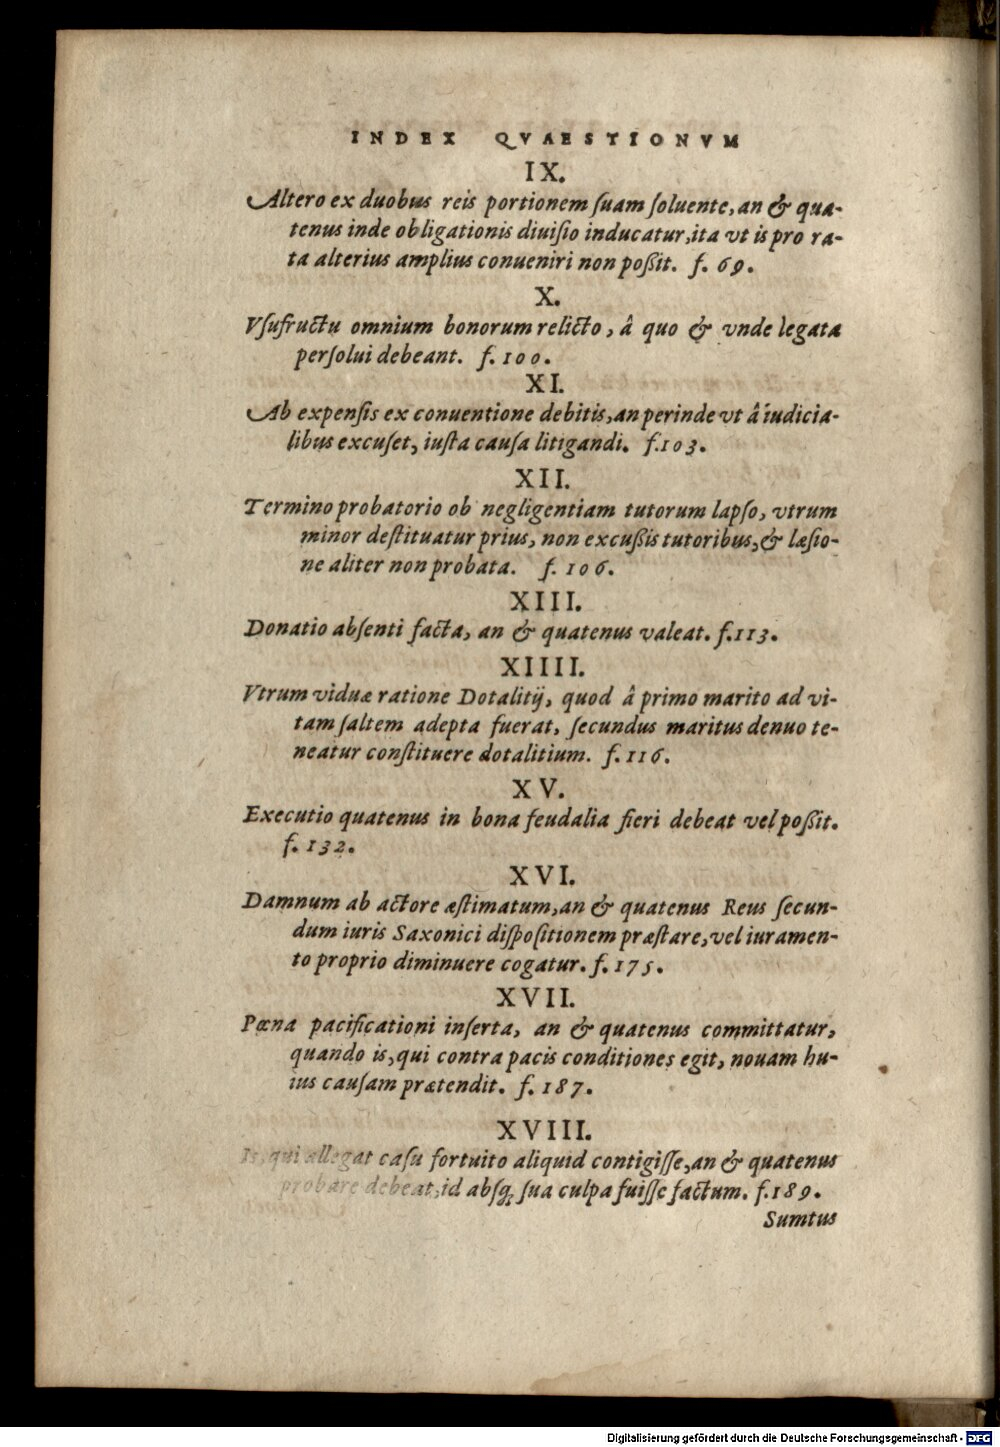 INDEX QVAESTIONVM
IX.
Altero ex duobus reis portionem ſuam ſoluente, an & qua-
tenus inde obligationis diuiſio inducatur, ita vt is pro ra-
ta alterius amplius conueniri non poßit. f. 69.
X.
Vſufructu omnium bonorum relicto, â quo & vnde legata
perſolui debeant. f. 100.
XI.
Ab expenſis ex conuentione debitis, an perinde vt â iudicia-
libus excuſet, iuſta cauſa litigandi. f. 103.
XII.
Termino probatorio ob negligentiam tutorum lapſo, vtrum
minor deſtituatur prius, non excußis tutoribus, & læſio-
ne aliter non probata. f. 106.
XIII.
Donatio abſenti facta, an & quatenus valeat. f. 113.
XIIII.
Vtrum viduæ ratione Dotalitij, quod â primo marito ad vi-
tam ſaltem adepta fuerat, ſecundus maritus denuo te-
neatur conſtituere dotalitium. f. 116.
XV.
Executio quatenus in bona feudalia fieri debeat vel poßit.
f. 132.
XVI.
Damnum ab actore æſtimatum, an & quatenus Reus ſecun-
dum iuris Saxonici diſpoſitionem præſtare, vel iuramen-
to proprio diminuere cogatur. f. 175.
XVII.
Pœna pacificationi inſerta, an & quatenus committatur,
quando is, qui contra pacis conditiones egit, nouam hu-
ius cauſam prætendit. f. 187.
XVIII.
Is, qui allegat caſu fortuito aliquid contigiſſe, an & quatenus
probare debeat, id abſq; ſua culpa fuiſſe factum. f. 189.
Sumtus
Digitalisierung gefördert durch die Deutsche Forschungsgemeinschaft - DFG